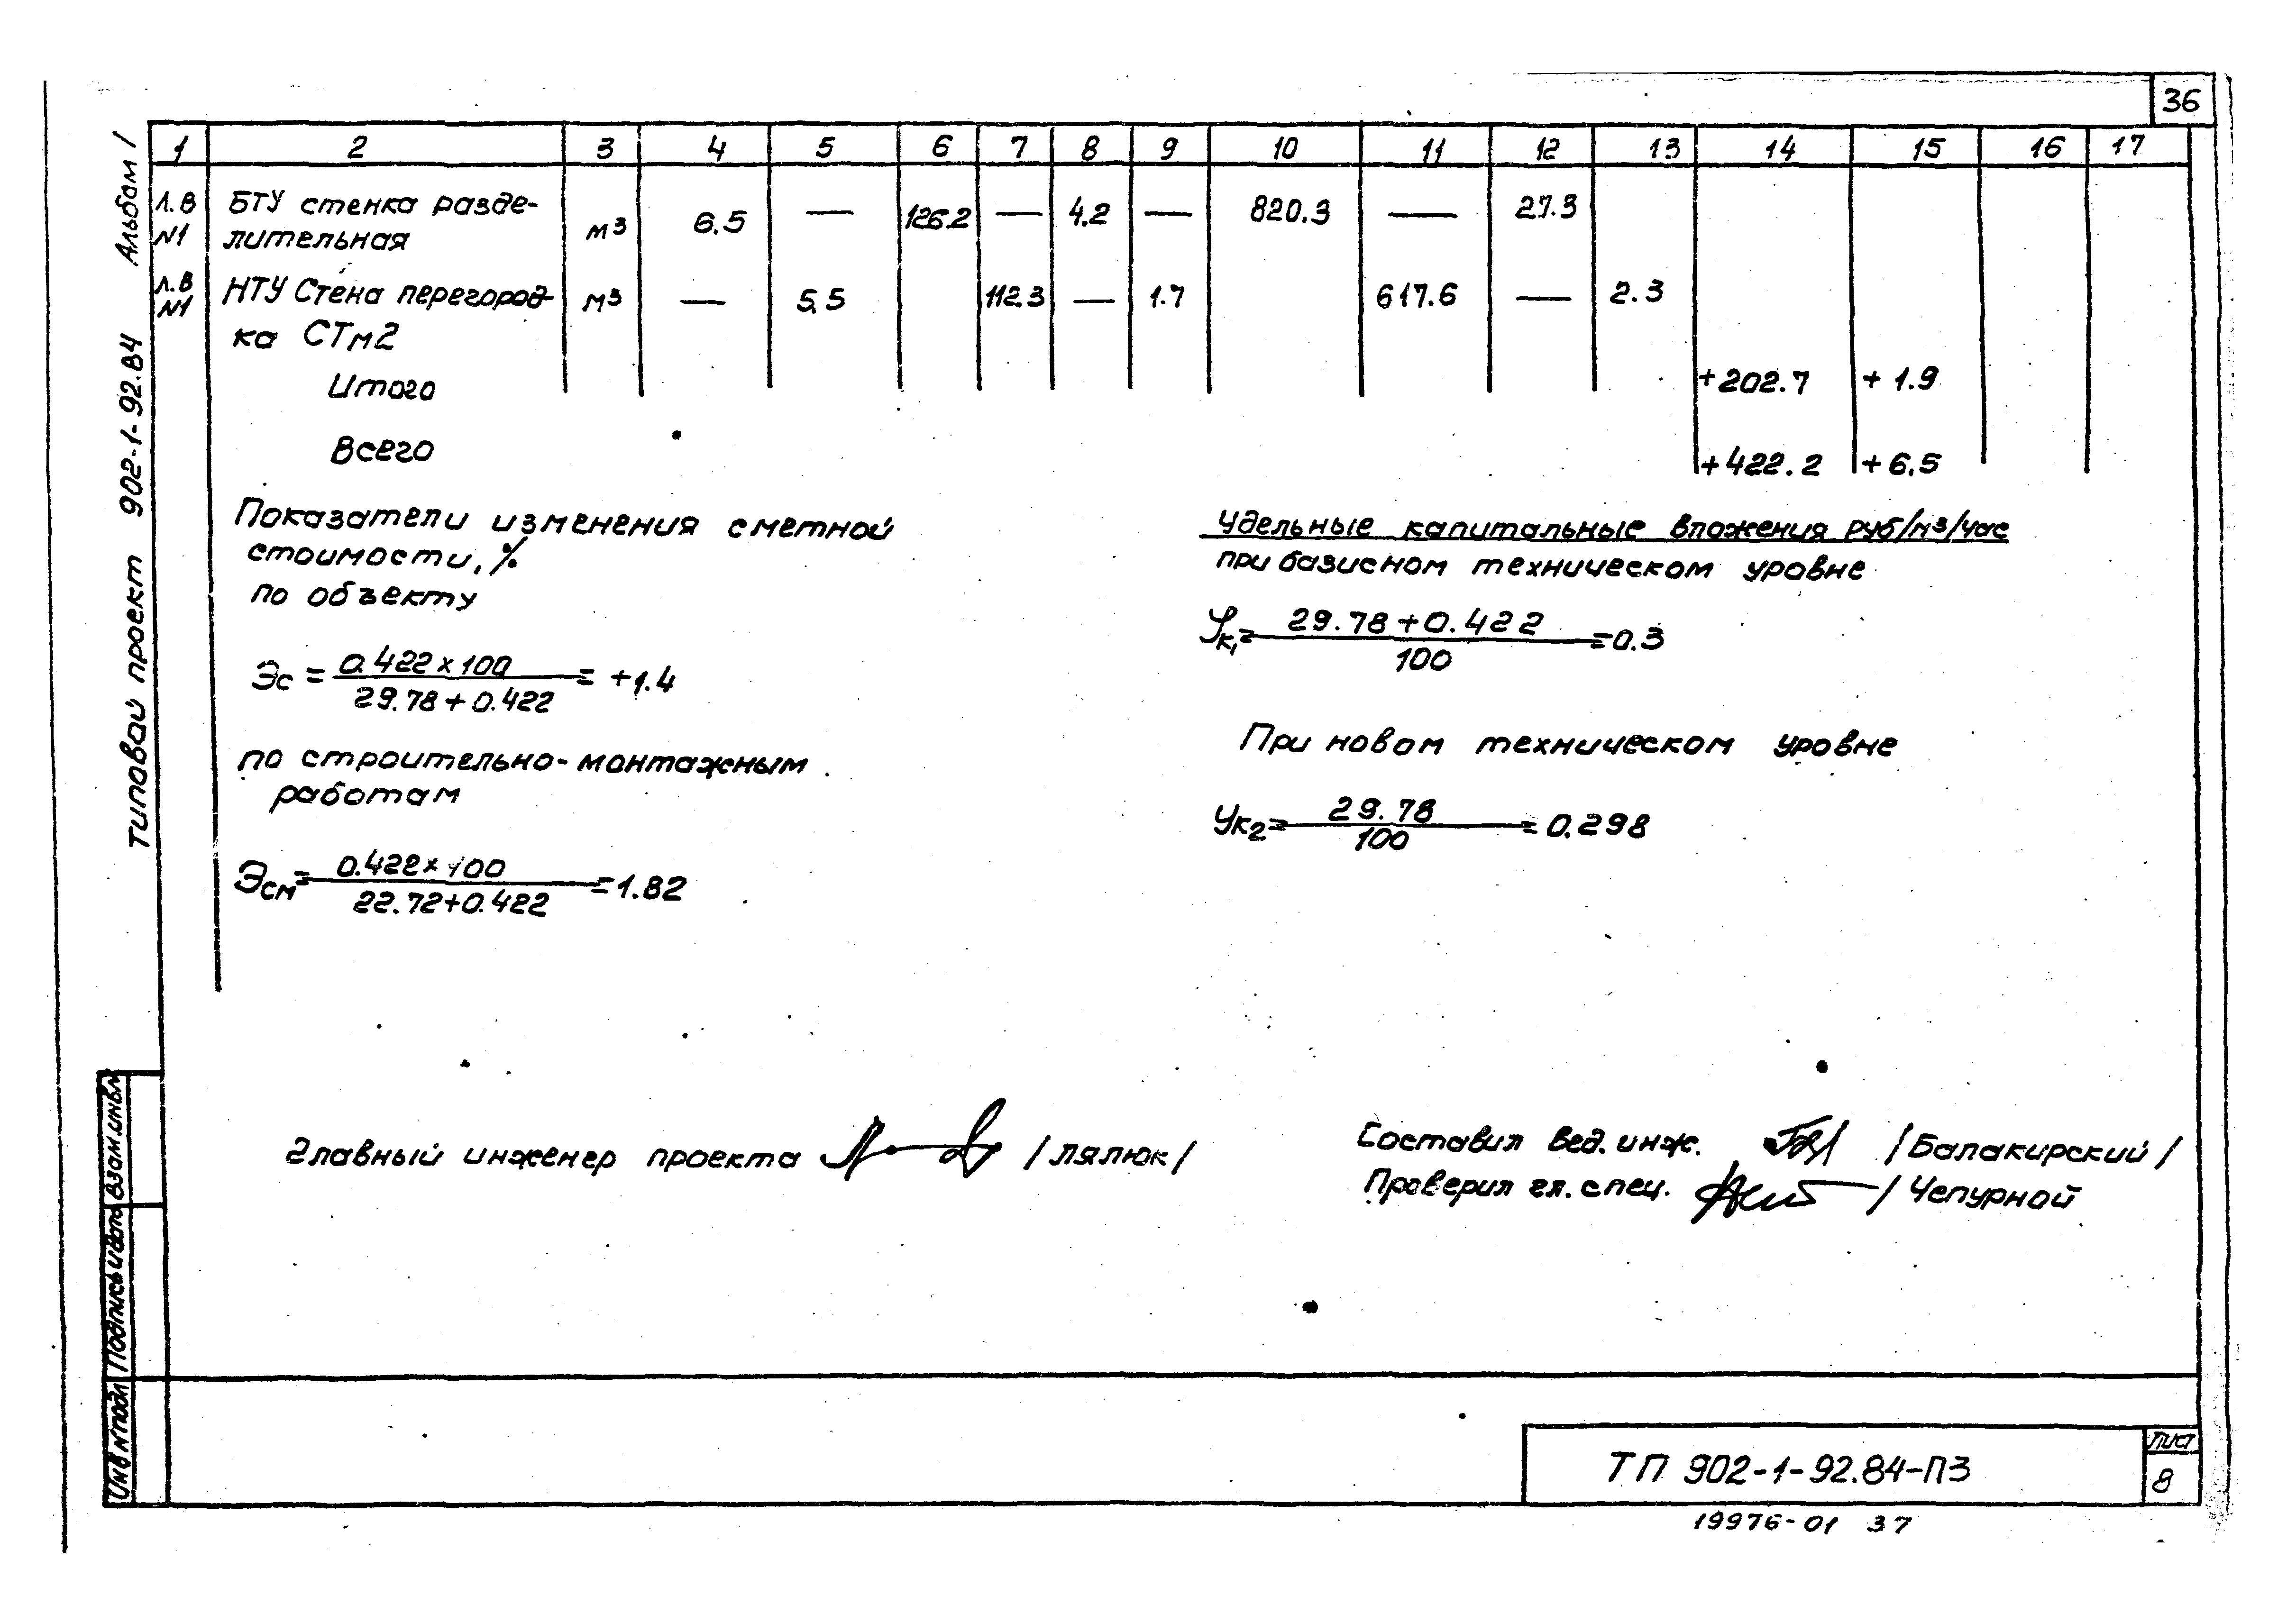 36
1 2 3 4 5 6 7 8 9 10 11 12 13 14 15 16 17
Л.В БТУ стенка разде-
N1 лительная м³ 6.5 — 126.2 — 4.2 — 820.3 — 27.3
Л.В НТУ Стена перегород-
N1 ка СТм2 м³ — 5.5 112.3 — 1.7 617.6 — 2.3
Итого +202.7 +1.9
Всего +422.2 +6.5
Показатели изменения сметной
стоимости, %
по объекту
Эс = 0.422 х 100 / 29.78 + 0.422 = +1.4
по строительно-монтажным
работам
Эсм = 0.422 х 100 / 22.72+0.422 = 1.82
Удельные капитальные вложения руб/м³/час
при базисном техническом уровне
Ук1 = 29.78 + 0.422 / 100 = 0.3
При новом техническом уровне
Ук2 = 29.78 / 100 = 0.298
Главный инженер проекта /Лялюк/
Составил вед. инж. /Балакирский/
Проверил гл. спец. / Чепурной
Альбом I
Типовой проект 902-1-92.84
Взам.инв.N
Подпись и дата
Инв N подл
ТП 902-1-92.84-ПЗ
Лист
8
19976-01 37